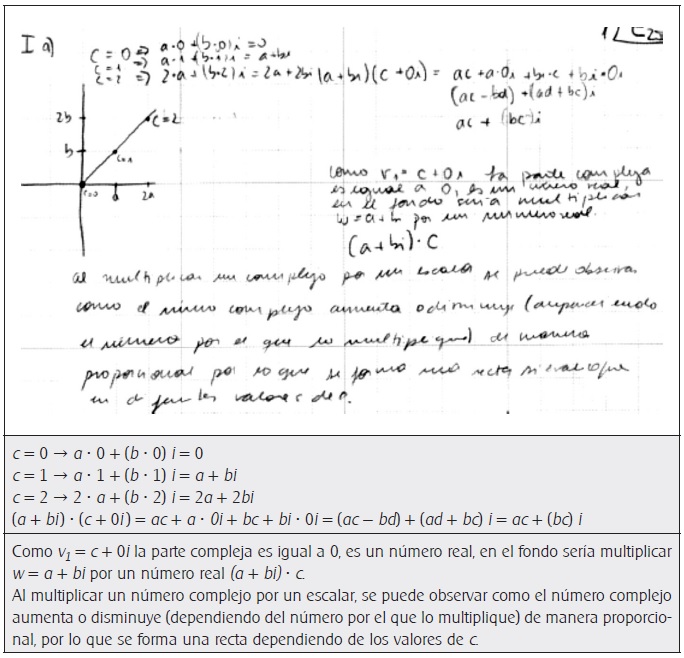 I a)
C = 0 => a·0 + (b·0)i = 0
C = 1 => a·1 + (b·1)i = a + bi
C = 2 => 2·a + (b·2)i = 2a + 2bi
(a + bi)(c + 0i) = ac + a·0i + bi·c + bi·0i
(ac - bd) + (ad + bc)i
ac + (bc)i
2b
c=2
b
c=1
c=0
2a
Como v₁ = c + 0i la parte compleja
es igual a 0, es un número real,
en el fondo sería multiplicar
w = a + bi por un número real.
(a + bi) · C
al multiplicar un complejo por un escalar se puede observar
como el número complejo aumenta o disminuye (dependiendo
el número por el que lo multiplique) de manera
proporcional por lo que se forma una recta
los valores de c.
c = 0 → a · 0 + (b · 0) i = 0
c = 1 → a · 1 + (b · 1) i = a + bi
c = 2 → 2 · a + (b · 2) i = 2a + 2bi
(a + bi) · (c + 0i) = ac + a · 0i + bc + bi · 0i = (ac – bd) + (ad + bc) i = ac + (bc) i
Como v₁ = c + 0i la parte compleja es igual a 0, es un número real, en el fondo sería multiplicar
w = a + bi por un número real (a + bi) · c.
Al multiplicar un número complejo por un escalar, se puede observar como el número complejo
aumenta o disminuye (dependiendo del número por el que lo multiplique) de manera proporcio-
nal, por lo que se forma una recta dependiendo de los valores de c.